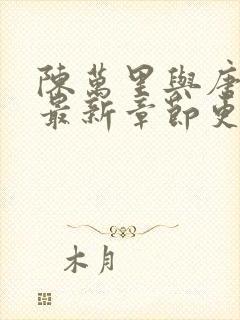 陳萬里與唐
最新章節更
木月